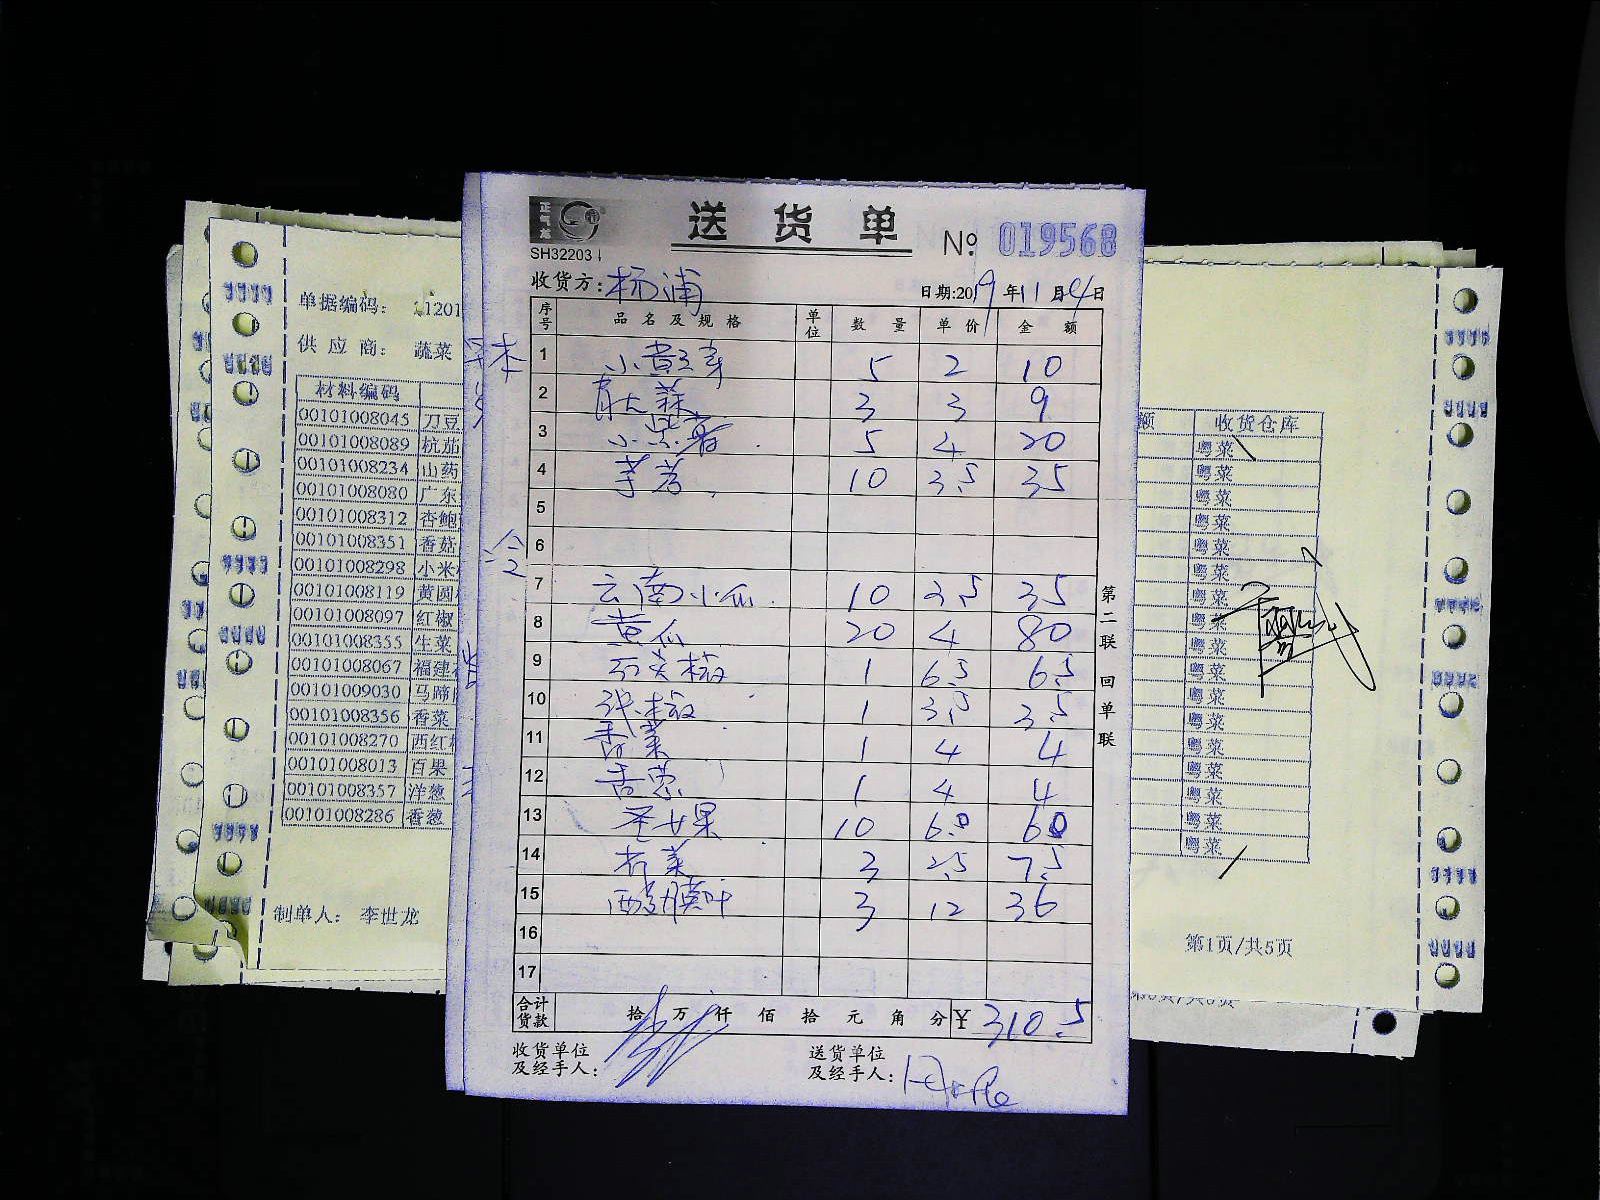 正气龙
SH32203
送货单
№ 019568
收货方:杨浦
日期:2019年11月4日
序号 品名及规格 单位 数量 单价 金额
1 5 2 10
2 3 3 9
3 小紫薯 5 4 20
4 10 3.5 35
5
6
7 云南小瓜 10 3.5 35
8 黄瓜 20 4 80
9 1 6.5 6.5
10 1 3.5 3.5
11 香菜 1 4 4
12 香葱 1 4 4
13 圣女果 10 6.0 60
14 3 2.5 7.5
15 3 12 36
16
17
合计货款 拾万仟佰拾元角分 ¥ 310.5
收货单位及经手人:
送货单位及经手人:
第二联 回单联
单据编码: 11201
供应商: 蔬菜
材料编码
00101008045 刀豆
00101008089 杭茄
00101008234 山药
00101008080 广东
00101008312 杏鲍
00101008351 香菇
00101008298 小米
00101008119 黄圆
00101008097 红椒
00101008355 生菜
00101008067 福建
00101009030 马蹄
00101008356 香菜
00101008270 西红
00101008013 百果
00101008357 洋葱
00101008286 香葱
制单人: 李世龙
额 收货仓库
粤菜
粤菜
粤菜
粤菜
粤菜
粤菜
粤菜
粤菜
粤菜
粤菜
粤菜
粤菜
粤菜
粤菜
粤菜
粤菜
粤菜
第1页/共5页